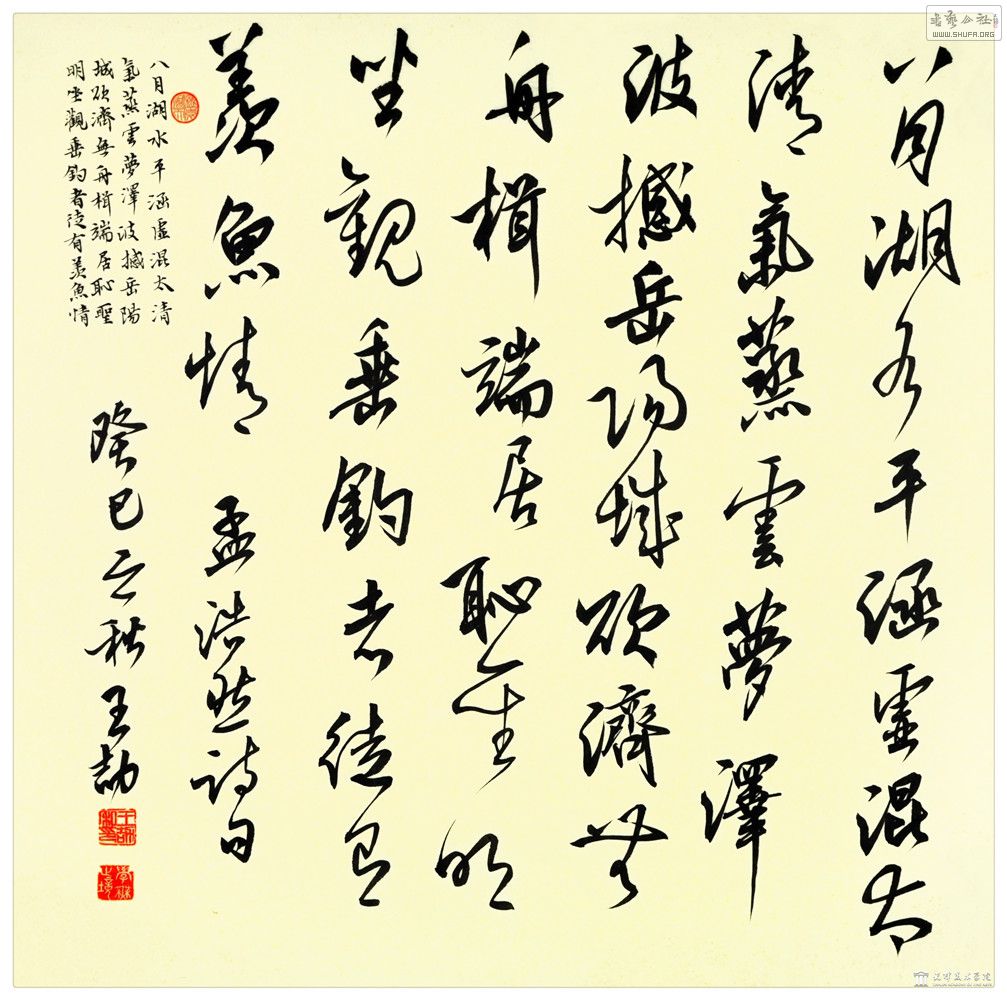 八月湖水平涵虛混太
清氣蒸雲夢澤
波撼岳陽城欲濟無
舟楫端居恥聖明
坐觀垂釣者徒有
羨魚情 孟浩然詩
八月湖水平涵虛混太清
氣蒸雲夢澤波撼岳陽
城欲濟無舟楫端居恥聖
明坐觀垂釣者徒有羨魚情
癸巳之秋王劼
WWW.SHUFA.ORG